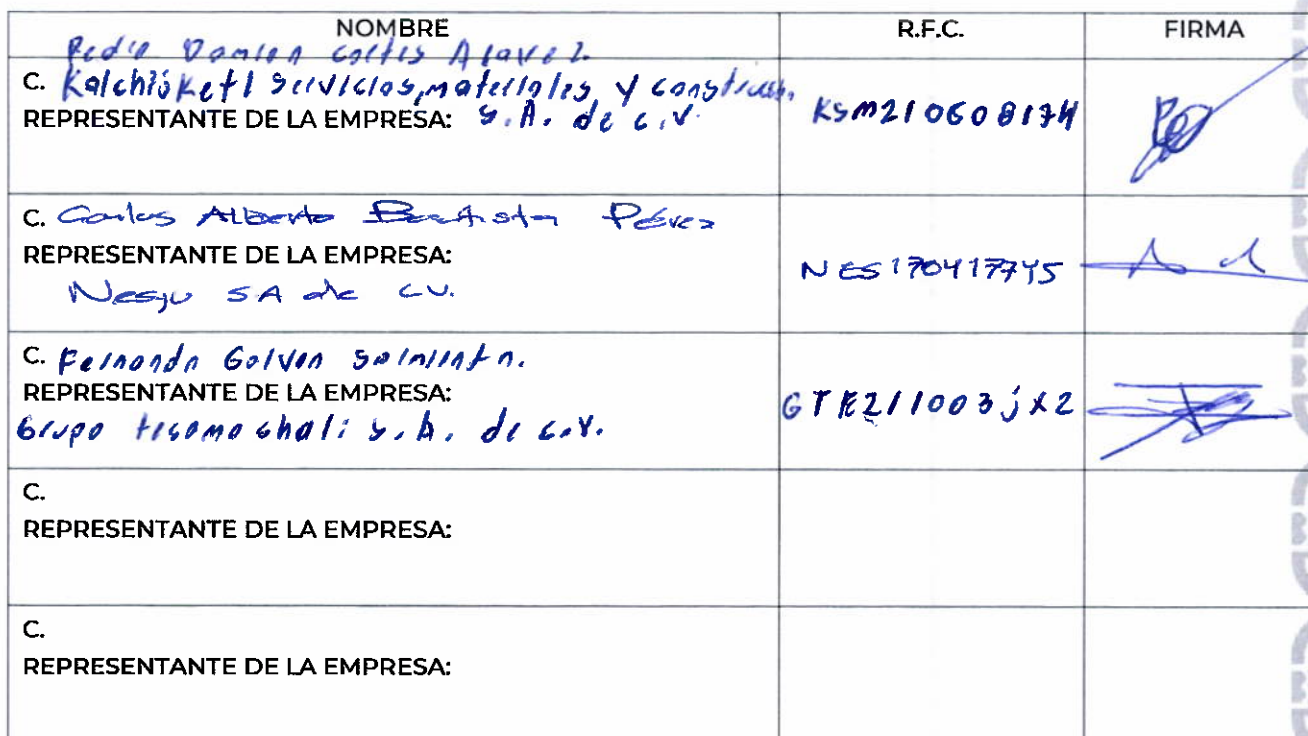 NOMBRE R.F.C. FIRMA
Pedro Damian Cortes Alavez.
C. Kalchiüketl servicios, materiales y
REPRESENTANTE DE LA EMPRESA: S.A. de C.V.
KSM210608174
C. Carlos Alberto Bautista Pérez
REPRESENTANTE DE LA EMPRESA:
Nesju SA de CV.
NES170417745
C. Fernando Galvan Sarmiento.
REPRESENTANTE DE LA EMPRESA:
Grupo tecomochali S.A. de C.V.
GTE211003jX2
C.
REPRESENTANTE DE LA EMPRESA:
C.
REPRESENTANTE DE LA EMPRESA: